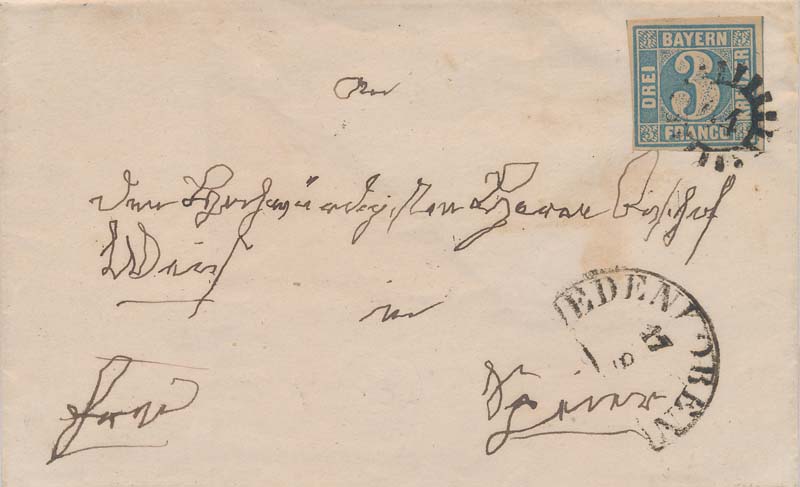 BAYERN
DREI 3 KREUZER
FRANCO
An
den Hochwürdigsten Herrn Bischof
Weis
in
Speier
frei
EDENKOBEN
17
8